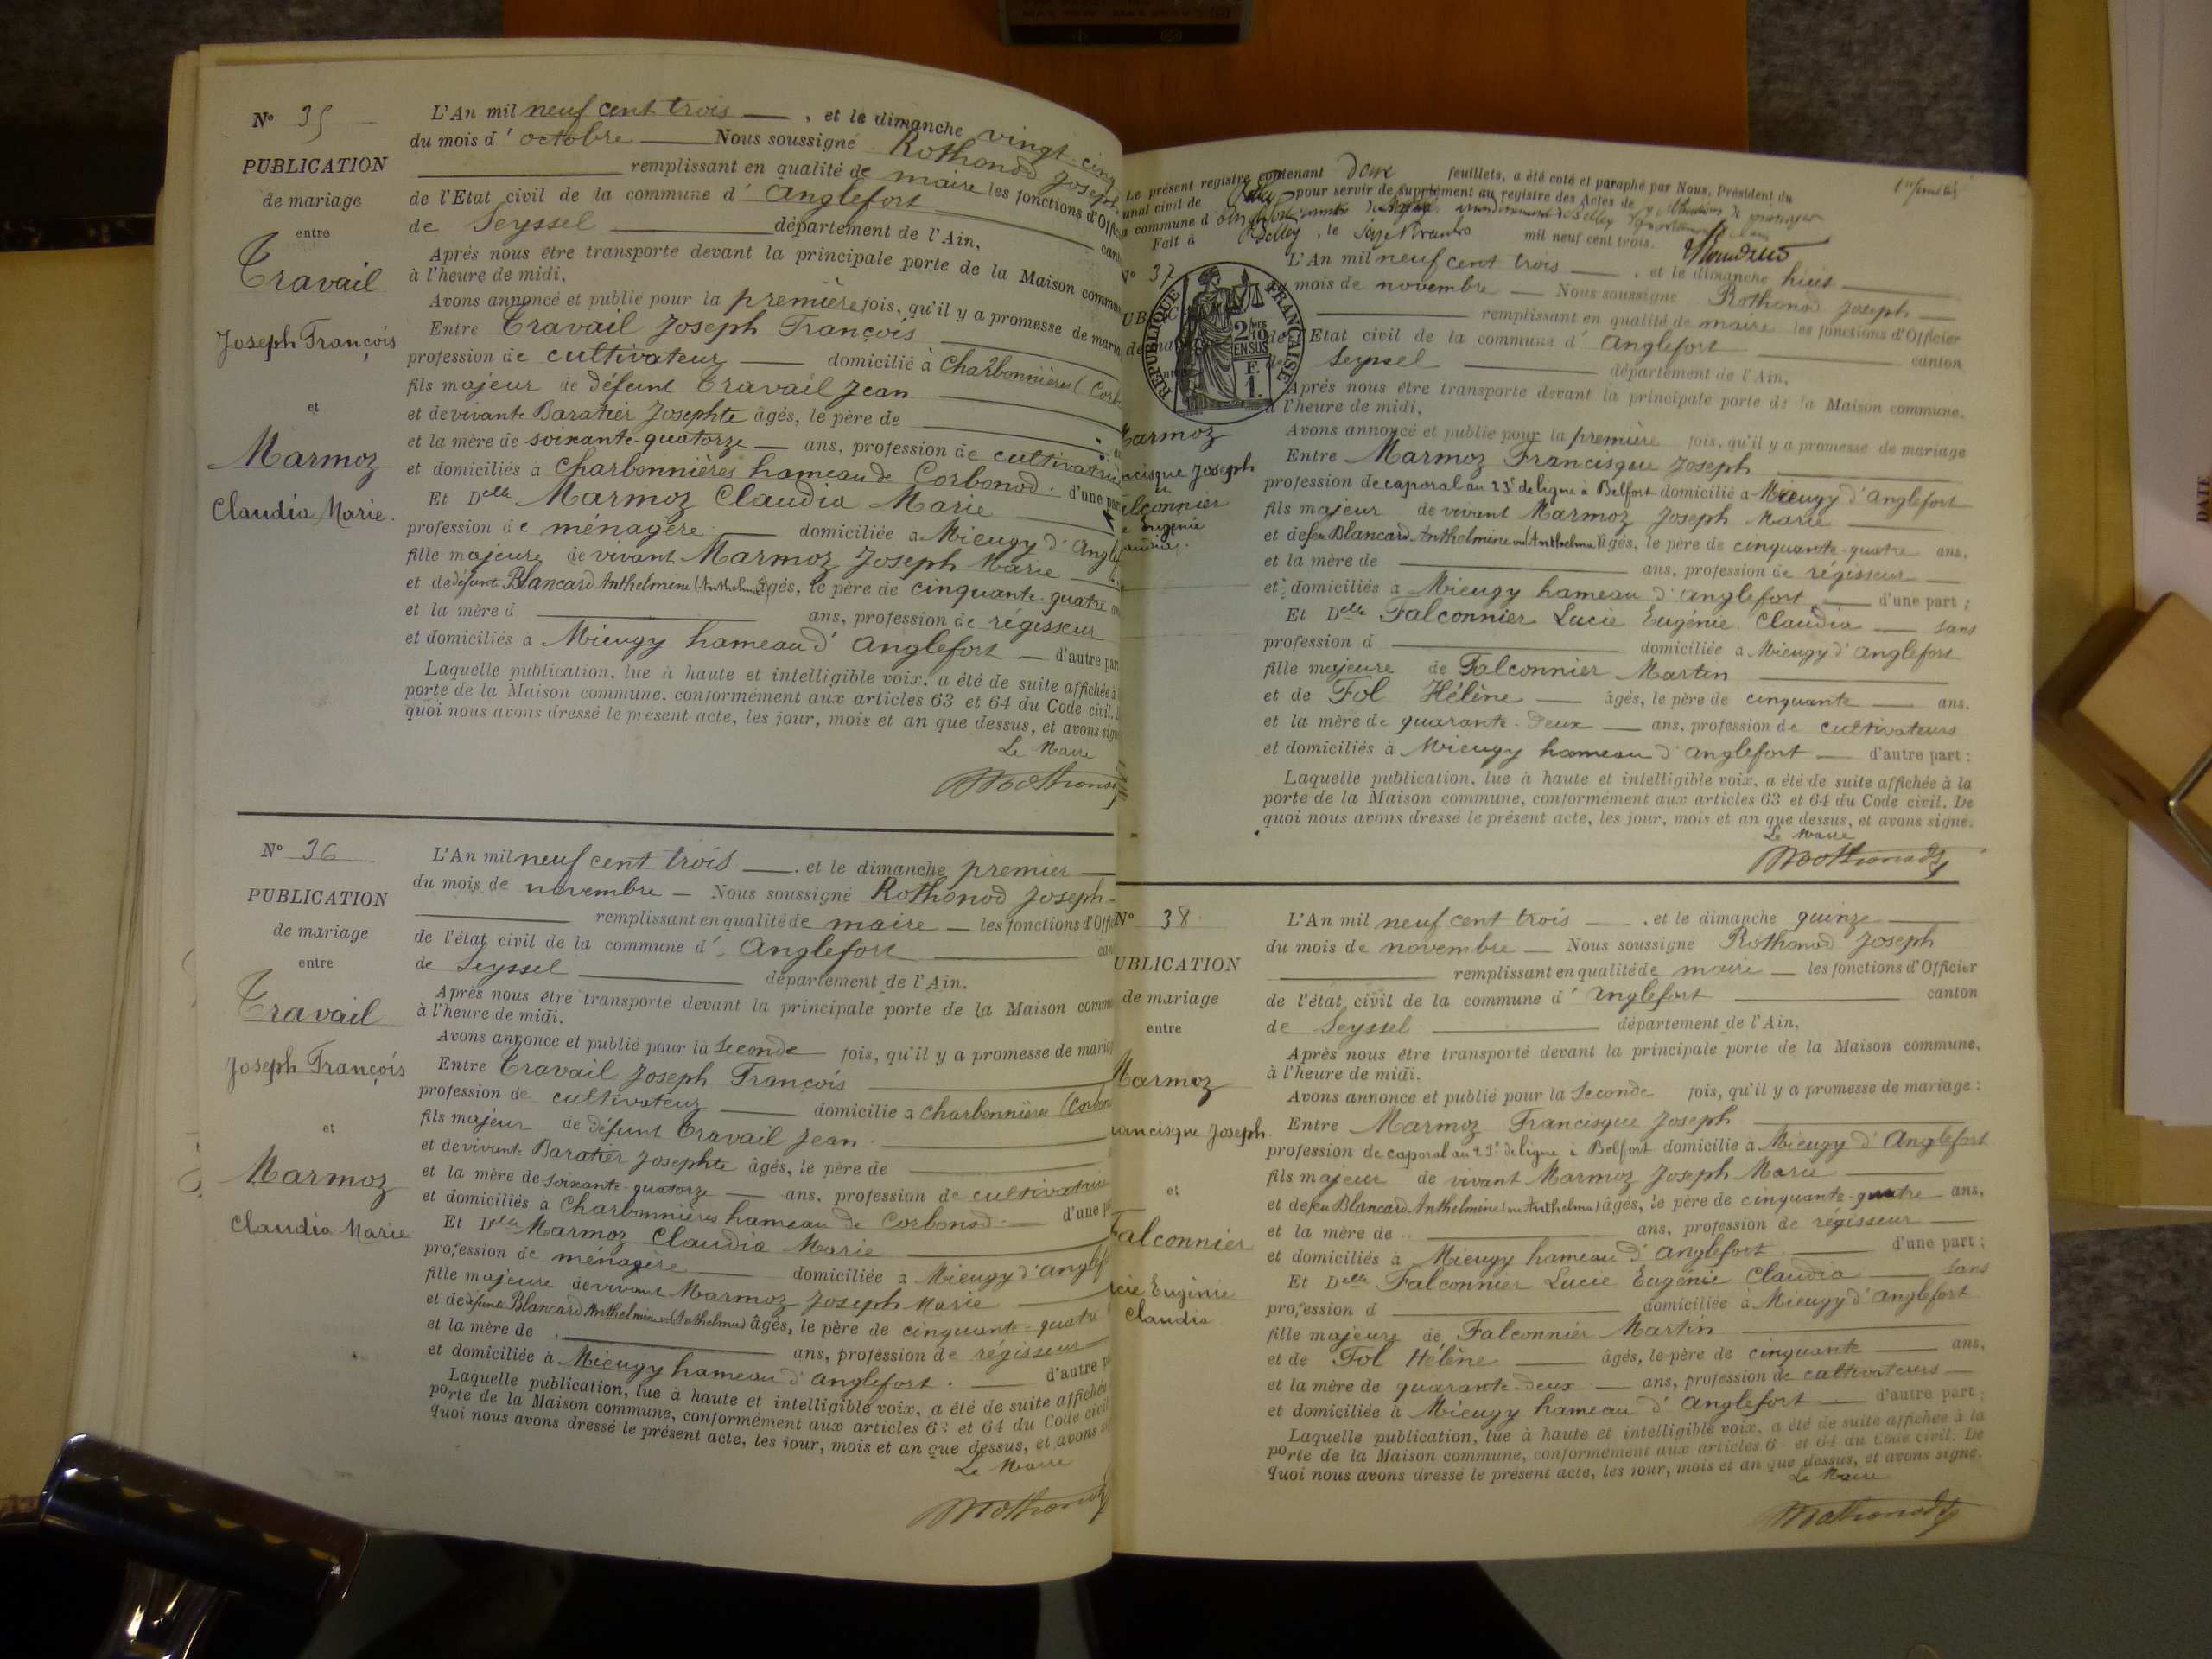 N° 35
PUBLICATION
de mariage
entre
Travail
Joseph François
et
Marmoz
Claudia Marie.
L'An mil neuf cent trois — , et le dimanche vingt-cinq
du mois d' octobre — Nous soussigné Rothonod Joseph
remplissant en qualité de maire les fonctions d'Offi
de l'Etat civil de la commune d' Anglefort — can
de Seyssel — département de l'Ain,
Après nous être transporté devant la principale porte de la Maison commu
à l'heure de midi,
Avons annoncé et publié pour la première fois, qu'il y a promesse de maria
Entre Travail Joseph François
profession de cultivateur — domicilié à Charbonnières (Corb
fils majeur de défunt Travail Jean
et de vivante Baratier Josephte âgés, le père de
et la mère de soixante-quatorze — ans, profession de cultivatrice
et domiciliés à Charbonnières hameau de Corbonod. d'une par
Et Delle Marmoz Claudia Marie
profession de ménagère — domiciliée à Mieugy d'Angle
fille majeure de vivant Marmoz Joseph Marie
et de défunte Blancard Anthelmine (Anthelma) âgés, le père de cinquante-quatre
et la mère d — ans, profession de régisseur
et domiciliés à Mieugy hameau d' Anglefort — d'autre par
Laquelle publication, lue à haute et intelligible voix, a été de suite affichée à
porte de la Maison commune, conformément aux articles 63 et 64 du Code civil.
quoi nous avons dressé le présent acte, les jour, mois et an que dessus, et avons sign
Le Maire
Rothonod
N° 36
PUBLICATION
de mariage
entre
Travail
Joseph François
et
Marmoz
Claudia Marie
L'An mil neuf cent trois — . et le dimanche premier
du mois de novembre — Nous soussigné Rothonod Joseph
remplissant en qualité de maire — les fonctions d'Offi
de l'état civil de la commune d' Anglefort — can
de Seyssel — département de l'Ain.
Après nous être transporté devant la principale porte de la Maison commu
à l'heure de midi.
Avons annoncé et publié pour la seconde fois, qu'il y a promesse de maria
Entre Travail Joseph François
profession de cultivateur — domicilié à Charbonnières (Corbon
fils majeur de défunt Travail Jean
et de vivante Baratier Josephte âgés, le père de
et la mère de soixante-quatorze — ans, profession de cultivatrice
et domiciliés à Charbonnières hameau de Corbonod — d'une p
Et Delle Marmoz Claudia Marie
profession de ménagère — domiciliée à Mieugy d'Anglef
fille majeure de vivant Marmoz Joseph Marie
et de défunte Blancard Anthelmine ou (Anthelma) âgés, le père de cinquante-quatre
et la mère de — ans, profession de régisseur
et domiciliée à Mieugy hameau d' Anglefort . — d'autre
Laquelle publication, lue à haute et intelligible voix, a été de suite affichée
porte de la Maison commune, conformément aux articles 63 et 64 du Code civil
quoi nous avons dressé le présent acte, les jour, mois et an que dessus, et avons
Le Maire
Rothonod
Le présent registre contenant deux feuillets, a été coté et paraphé par Nous, Président du
unal civil de Belley pour servir de supplément au registre des Actes de publications de mariages
a commune d'Anglefort
Fait à Belley, le seize Novembre mil neuf cent trois.
N° 37
RÉPUBLIQUE FRANÇAISE
2/10 EN SUS
1 F.
Marmoz
ncisque Joseph
et
alconnier
e Eugénie
audia.
L'An mil neuf cent trois — . et le dimanche huit
mois de novembre — Nous soussigné Rothonod Joseph
remplissant en qualité de maire les fonctions d'Officier
de l'Etat civil de la commune d' Anglefort — canton
de Seyssel — département de l'Ain,
Après nous être transporté devant la principale porte de la Maison commune,
à l'heure de midi,
Avons annoncé et publié pour la première fois, qu'il y a promesse de mariage
Entre Marmoz Francisque Joseph
profession de caporal au 23e de ligne à Belfort domicilié à Mieugy d'Anglefort
fils majeur de vivant Marmoz Joseph Marie
et de feu Blancard Anthelmine ou (Anthelma) âgés, le père de cinquante-quatre ans,
et la mère de — ans, profession de régisseur
et domiciliés à Mieugy hameau d'Anglefort — d'une part ;
Et Delle Falconnier Lucie Eugénie Claudia — sans
profession d — domiciliée à Mieugy d'Anglefort
fille majeure de Falconnier Martin
et de Fol Hélène — âgés, le père de cinquante — ans,
et la mère de quarante-deux — ans, profession de cultivateurs
et domiciliés à Mieugy hameau d'Anglefort — d'autre part ;
Laquelle publication, lue à haute et intelligible voix, a été de suite affichée à la
porte de la Maison commune, conformément aux articles 63 et 64 du Code civil. De
quoi nous avons dressé le présent acte, les jour, mois et an que dessus, et avons signé.
Le Maire
Rothonod
N° 38
UBLICATION
de mariage
entre
Marmoz
rancisque Joseph
et
Falconnier
cie Eugénie
Claudia
L'An mil neuf cent trois — . et le dimanche quinze
du mois de novembre — Nous soussigné Rothonod Joseph
remplissant en qualité de maire — les fonctions d'Officier
de l'état civil de la commune d' Anglefort — canton
de Seyssel — département de l'Ain,
Après nous être transporté devant la principale porte de la Maison commune,
à l'heure de midi,
Avons annoncé et publié pour la seconde fois, qu'il y a promesse de mariage :
Entre Marmoz Francisque Joseph
profession de caporal au 23e de ligne à Belfort domicilié à Mieugy d'Anglefort
fils majeur de vivant Marmoz Joseph Marie
et de feu Blancard Anthelmine (ou Anthelma) âgés, le père de cinquante-quatre ans,
et la mère de — ans, profession de régisseur
et domiciliés à Mieugy hameau d'Anglefort — d'une part ;
Et Delle Falconnier Lucie Eugénie Claudia — sans
profession d — domiciliée à Mieugy d'Anglefort
fille majeure de Falconnier Martin
et de Fol Hélène — âgés, le père de cinquante — ans,
et la mère de quarante-deux — ans, profession de cultivateurs
et domiciliée à Mieugy hameau d' Anglefort — d'autre part ;
Laquelle publication, lue à haute et intelligible voix, a été de suite affichée à la
porte de la Maison commune, conformément aux articles 6 et 64 du Code civil. De
quoi nous avons dressé le présent acte, les jour, mois et an que dessus, et avons signé.
Le Maire
Rothonod
DATE